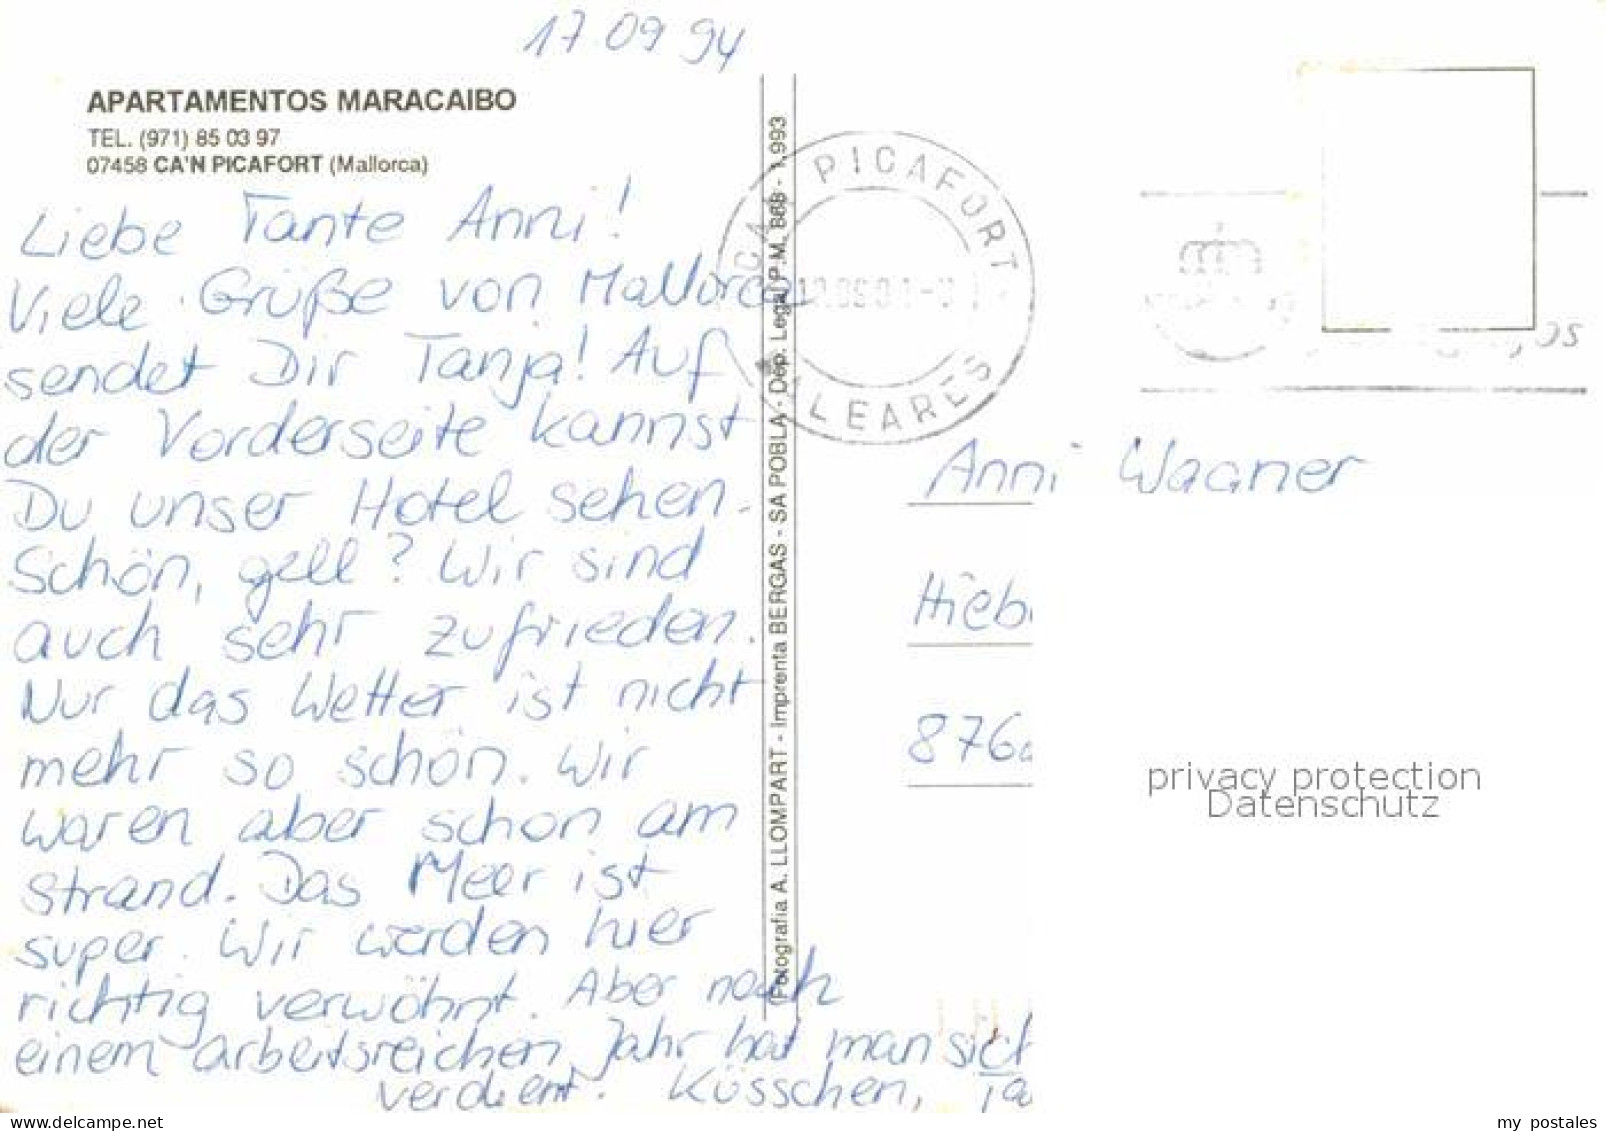 17.09 94
APARTAMENTOS MARACAIBO
TEL. (971) 85 03 97
07458 CA'N PICAFORT (Mallorca)
Liebe Tante Anni!
Viele Grüße von Mallorca
sendet Dir Tanja! Auf
der Vorderseite kannst
Du unser Hotel sehen.
Schön, gell? Wir sind
auch sehr zufrieden.
Nur das Wetter ist nicht
mehr so schön. Wir
waren aber schon am
Strand. Das Meer ist
super. Wir werden hier
richtig verwöhnt. Aber nach
einem arbeitsreichen Jahr hat man sich
verdient. Küsschen, Ta
(Fotografia A. LLOMPART - Imprenta BERGAS - SA POBLA - Dep. Legal P.M. 868 - 1.993
CA PICAFORT
BALEARES
Anni Wagner
Hieb
876
privacy protection
Datenschutz
my postales